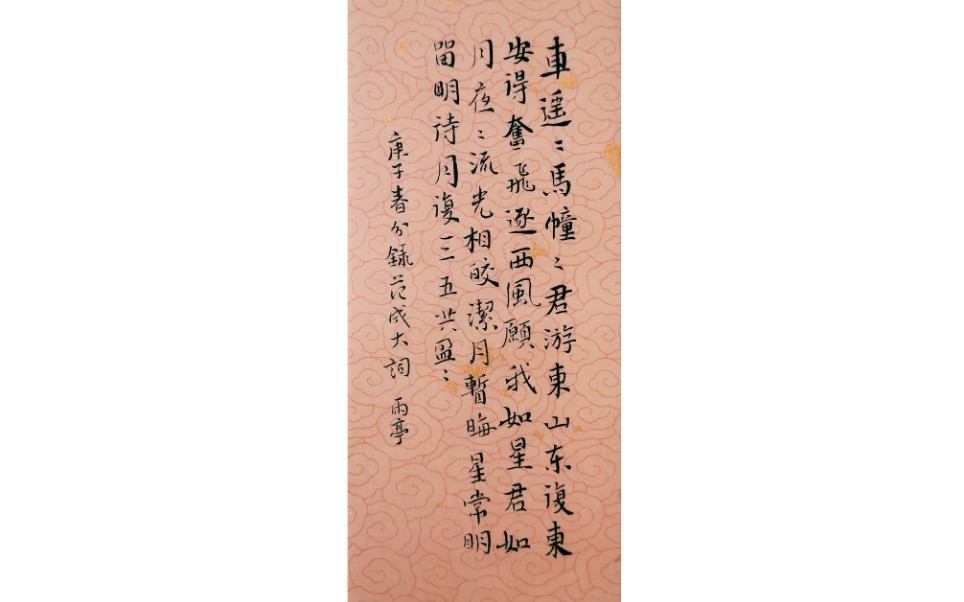 車遥〻馬幢〻君游東山东復東
安得奮飛逐西風願我如星君如
月夜〻流光相皎潔月暫晦星常明
留明待月復三五共盈〻
庚子春分録范成大詞 雨亭